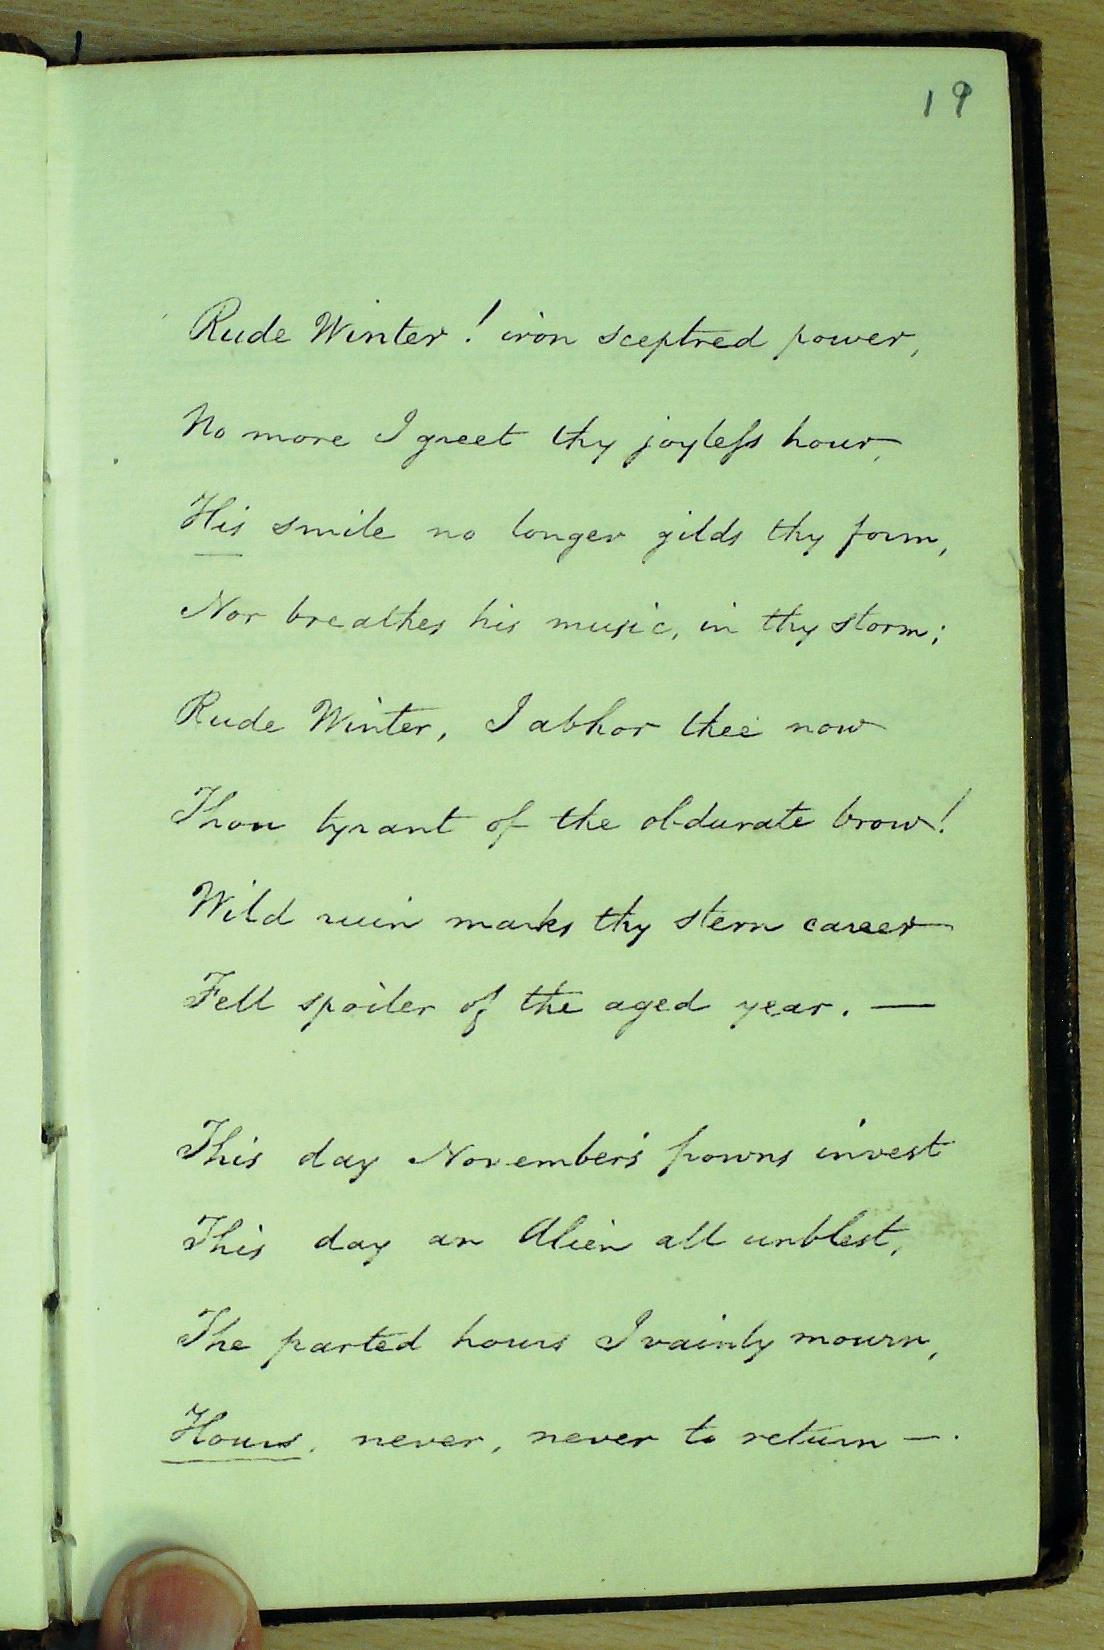 19
Rude Winter! iron sceptred power,
No more I greet thy joyleſs hour,
His smile no longer gilds thy form,
Nor breathes his music, in thy storm;
Rude Winter, I abhor thee now
Thou tyrant of the obdurate brow!
Wild ruin marks thy stern career
Fell spoiler of the aged year. —
This day November's frowns invest
This day an Alien all unblest,
The parted hours I vainly mourn,
Hours, never, never to return —.